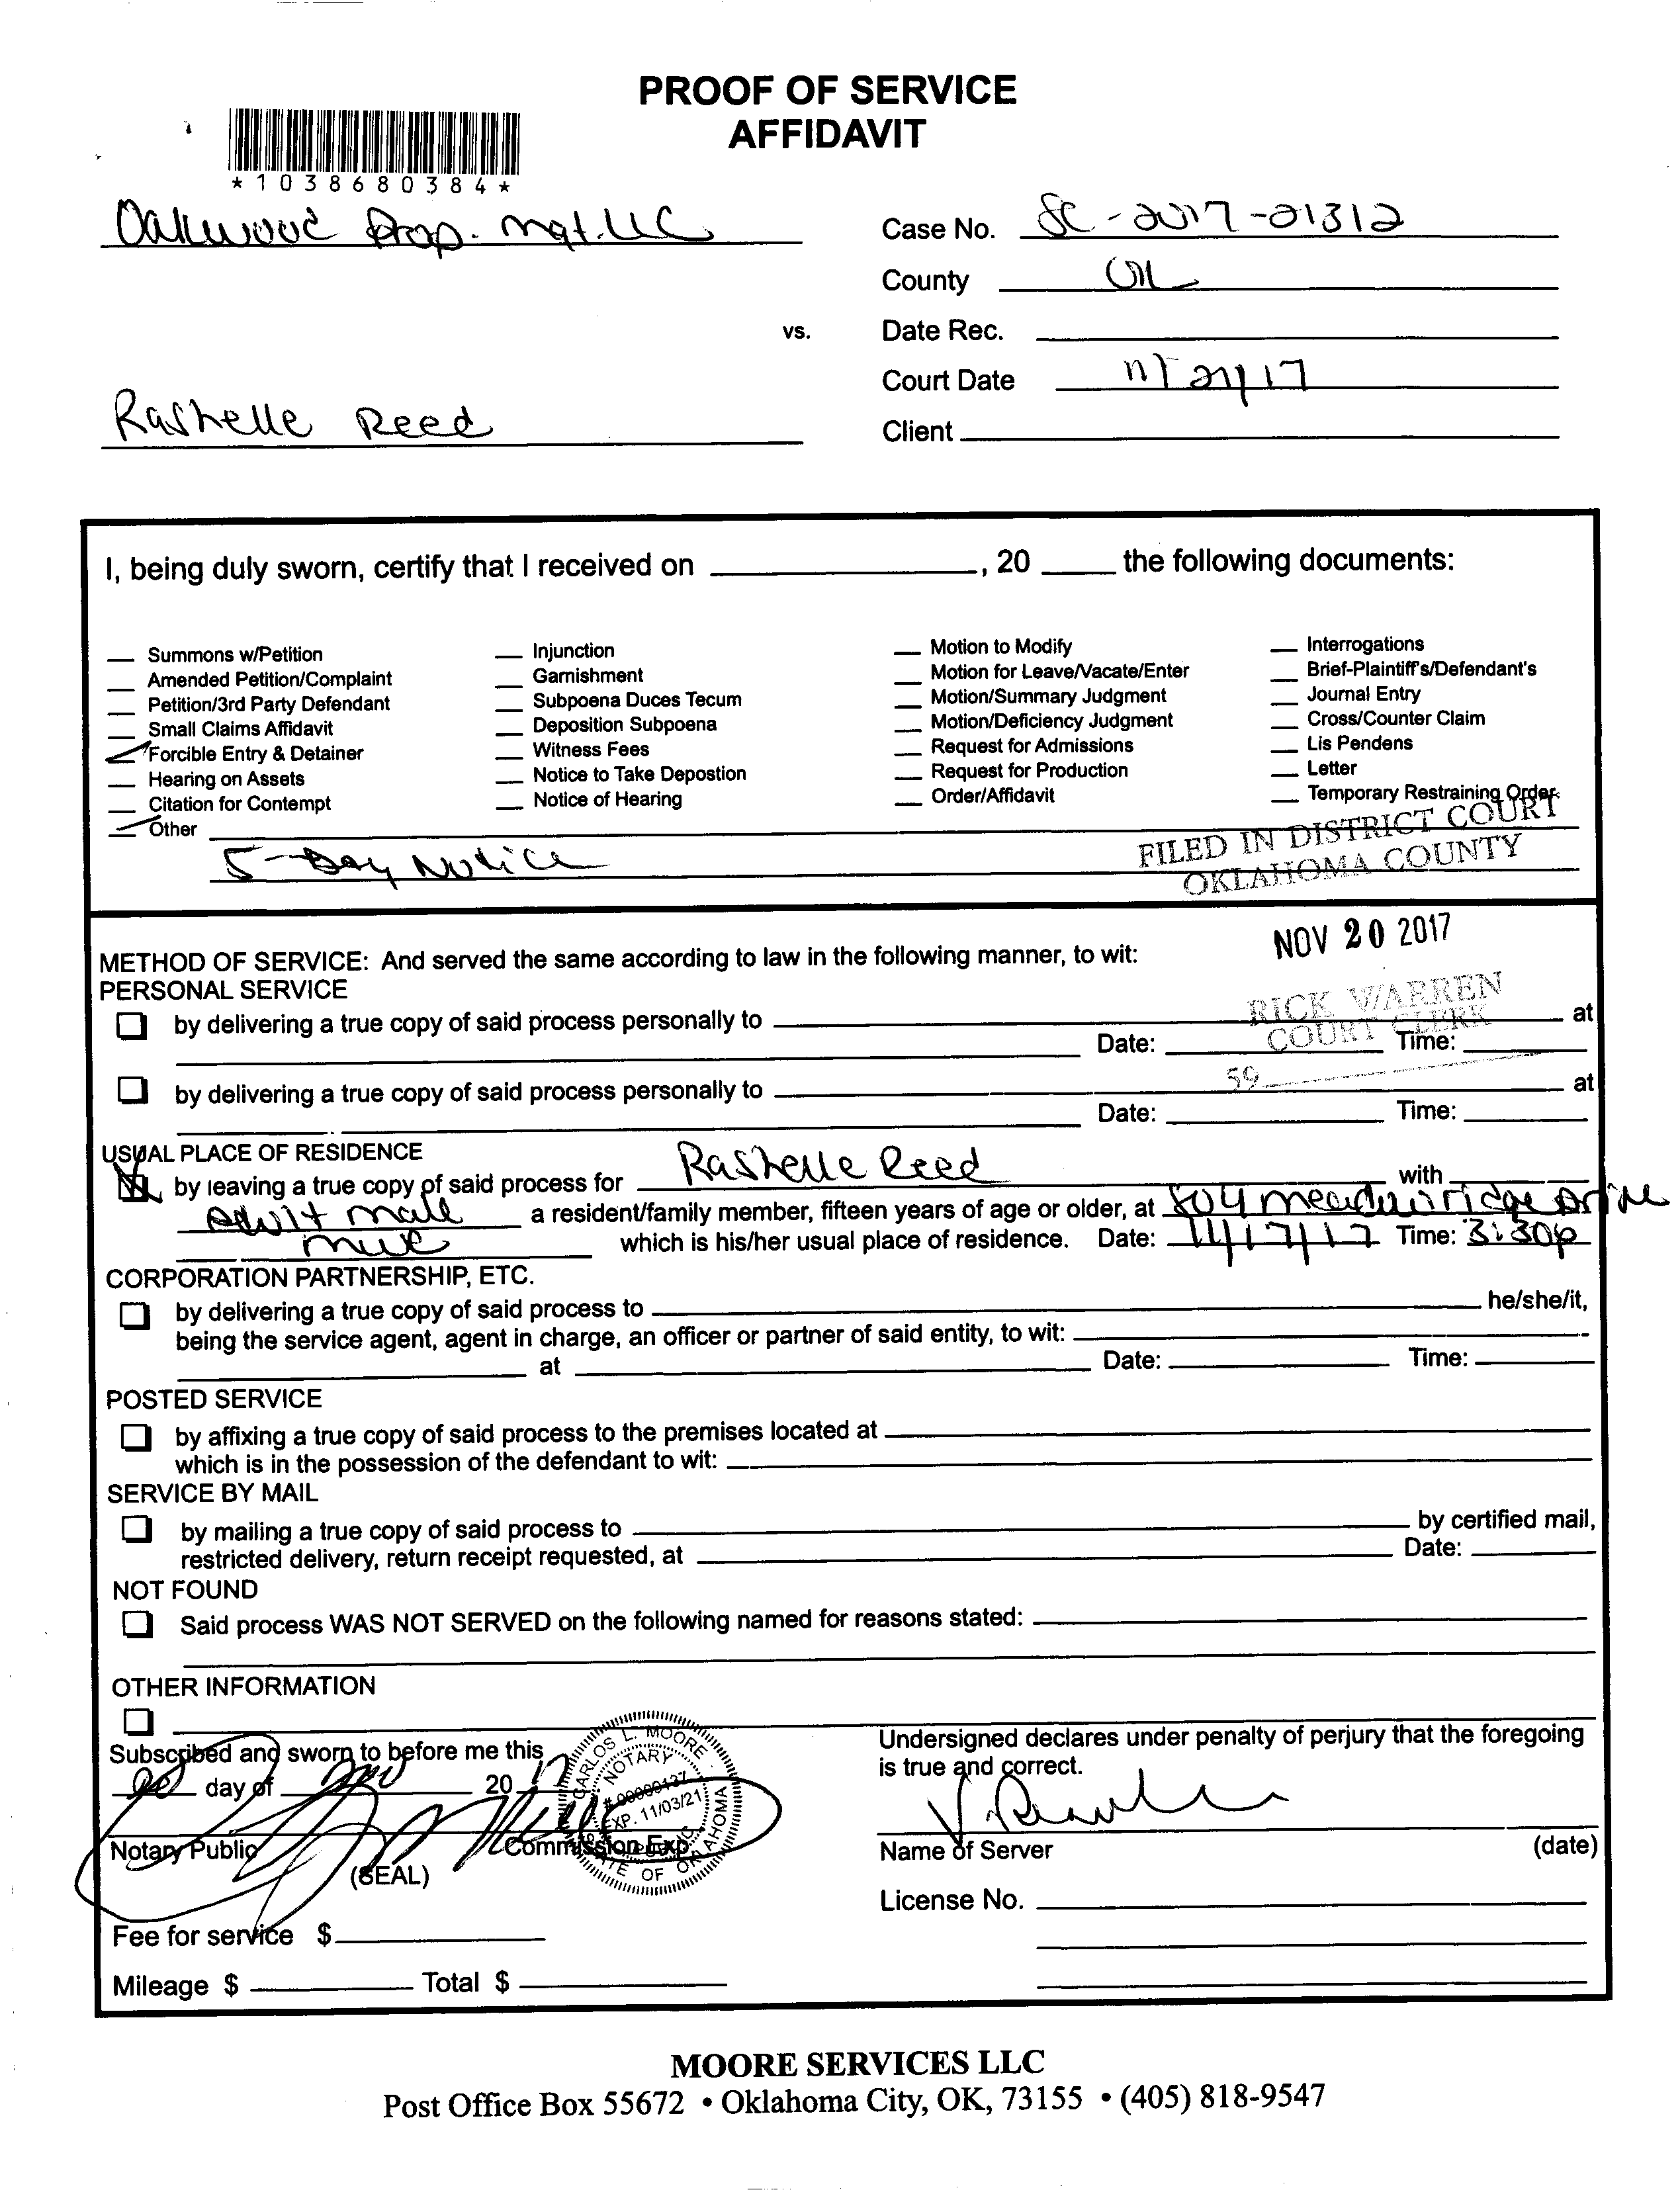 PROOF OF SERVICE
AFFIDAVIT
*1038680384*
Oakwood Prop. Mgt. LLC
Case No. SC-2017-21312
County OK
vs.
Date Rec.
Court Date 11/27/17
Rashelle Reed
Client
I, being duly sworn, certify that I received on ____, 20 ____ the following documents:
Summons w/Petition
Amended Petition/Complaint
Petition/3rd Party Defendant
Small Claims Affidavit
Forcible Entry & Detainer
Hearing on Assets
Citation for Contempt
Other
Injunction
Garnishment
Subpoena Duces Tecum
Deposition Subpoena
Witness Fees
Notice to Take Depostion
Notice of Hearing
Motion to Modify
Motion for Leave/Vacate/Enter
Motion/Summary Judgment
Motion/Deficiency Judgment
Request for Admissions
Request for Production
Order/Affidavit
Interrogations
Brief-Plaintiff's/Defendant's
Journal Entry
Cross/Counter Claim
Lis Pendens
Letter
Temporary Restraining Order
5-Day Notice
FILED IN DISTRICT COURT
OKLAHOMA COUNTY
NOV 20 2017
RICK WARREN
COURT CLERK
59
METHOD OF SERVICE: And served the same according to law in the following manner, to wit:
PERSONAL SERVICE
by delivering a true copy of said process personally to ____ at
Date: ____ Time: ____
by delivering a true copy of said process personally to ____ at
Date: ____ Time: ____
USUAL PLACE OF RESIDENCE
by leaving a true copy of said process for Rashelle Reed with
Adult male a resident/family member, fifteen years of age or older, at 804 Meadowridge Drive
MWC which is his/her usual place of residence. Date: 11/17/17 Time: 3:30p
CORPORATION PARTNERSHIP, ETC.
by delivering a true copy of said process to ____ he/she/it,
being the service agent, agent in charge, an officer or partner of said entity, to wit:
at ____ Date: ____ Time: ____
POSTED SERVICE
by affixing a true copy of said process to the premises located at
which is in the possession of the defendant to wit:
SERVICE BY MAIL
by mailing a true copy of said process to ____ by certified mail,
restricted delivery, return receipt requested, at ____ Date: ____
NOT FOUND
Said process WAS NOT SERVED on the following named for reasons stated:
OTHER INFORMATION
Subscribed and sworn to before me this
20 day of Nov 2017
Notary Public
(SEAL)
Commission Exp.
CARLOS L. MOORE
NOTARY
# 00000137
EXP. 11/03/21
PUBLIC
STATE OF OKLAHOMA
Undersigned declares under penalty of perjury that the foregoing
is true and correct.
Name of Server (date)
License No.
Fee for service $
Mileage $ ____ Total $
MOORE SERVICES LLC
Post Office Box 55672 • Oklahoma City, OK, 73155 • (405) 818-9547